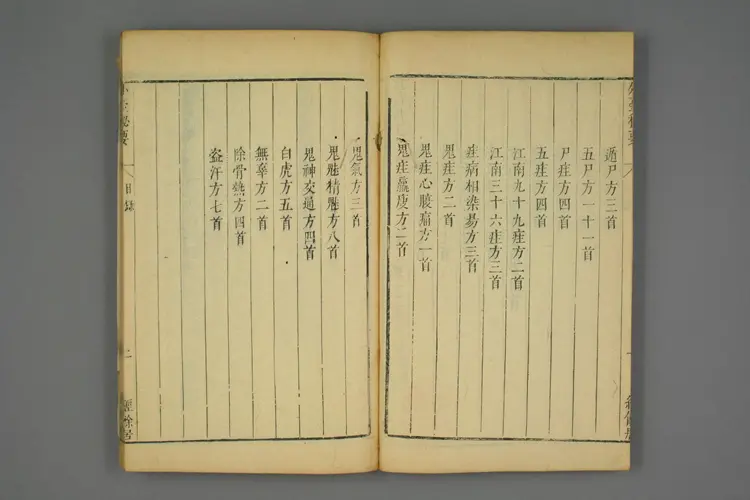 遁尸方三首
五尸方一十一首
尸疰方四首
五疰方四首
江南九十九疰方二首
江南三十六疰方三首
疰病相染易方三首
鬼疰方二首
鬼疰心腹痛方一首
鬼疰羸瘦方二首
鬼氣方三首
鬼魅精魅方八首
鬼神交通方四首
白虎方五首
無辜方二首
除骨熱方四首
盗汗方七首
目錄
二
經餘居